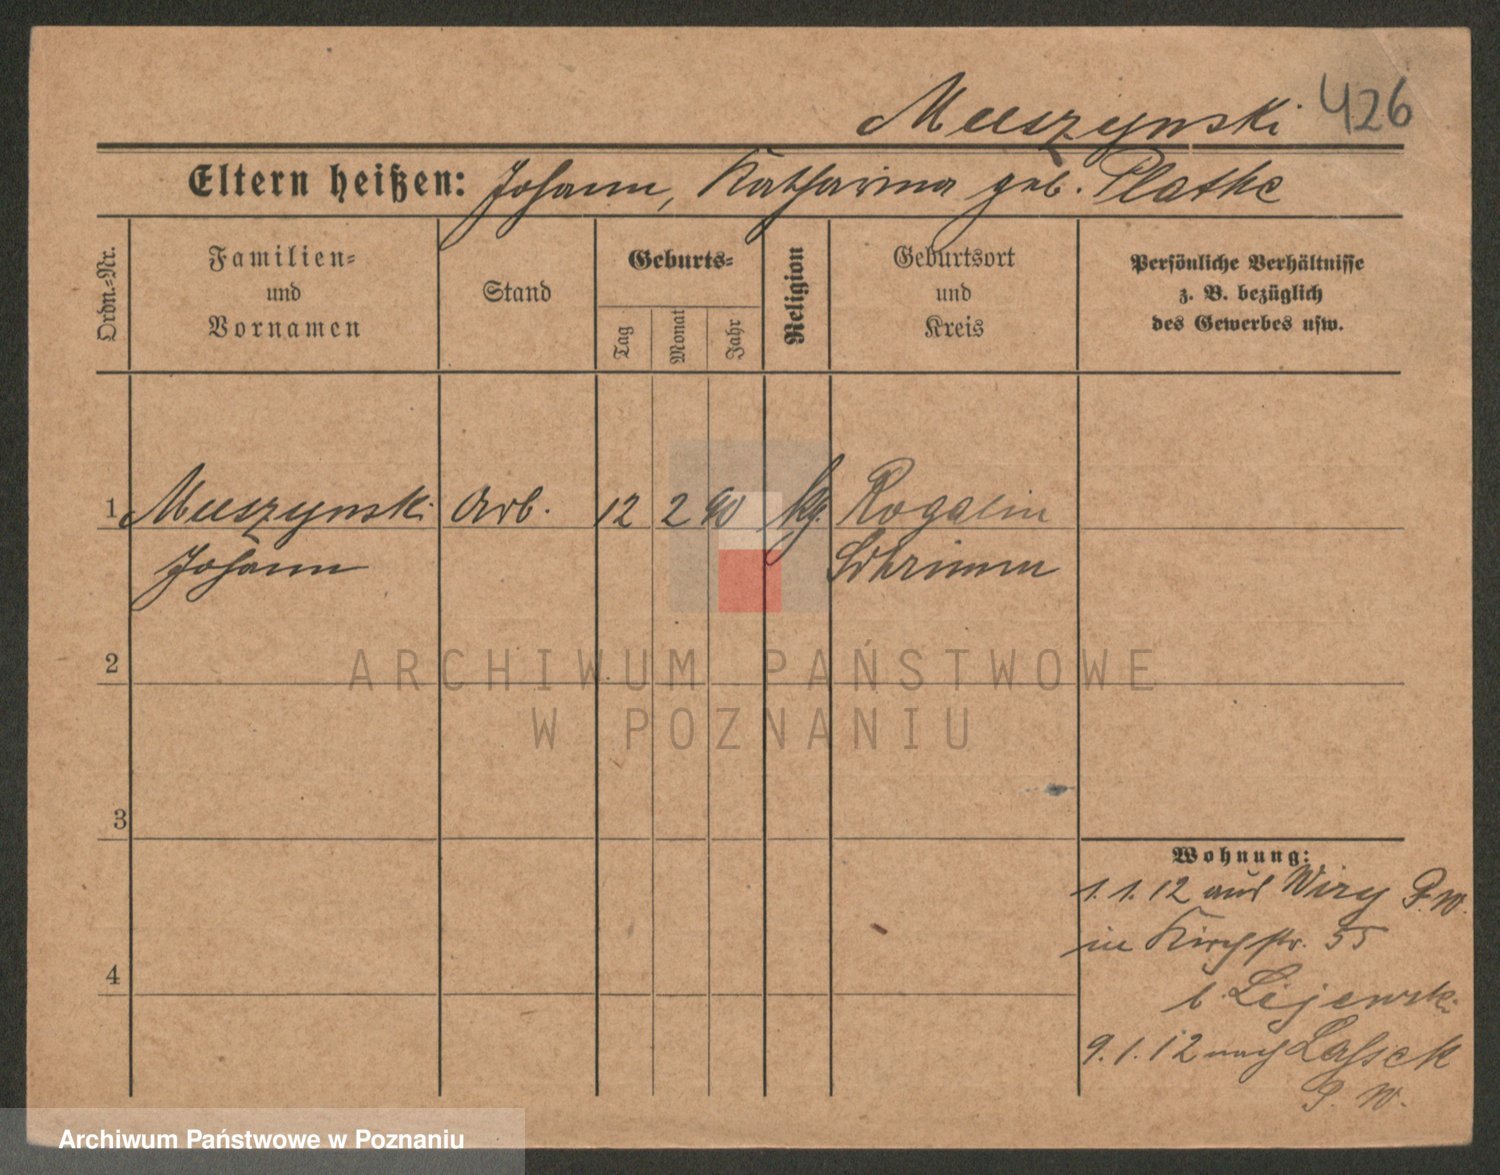 Muszynski 426
Eltern heißen: Johann, Katharina geb. Plathe
Ordn.-Nr.
Familien-
und
Vornamen
Stand
Geburts-
Tag
Monat
Jahr
Religion
Geburtsort
und
Kreis
Persönliche Verhältnisse
z. B. bezüglich
des Gewerbes usw.
1 Muszynski Arb. 12 2 90 kg. Rogalin
Johann Schrimm
2
ARCHIWUM PAŃSTWOWE
W POZNANIU
3
Wohnung:
1.1.12 aus Wiry P. W.
in Kirchstr. 55
b. Lijewski
4
9.1.12 nach Lassek
P. W.
Archiwum Państwowe w Poznaniu